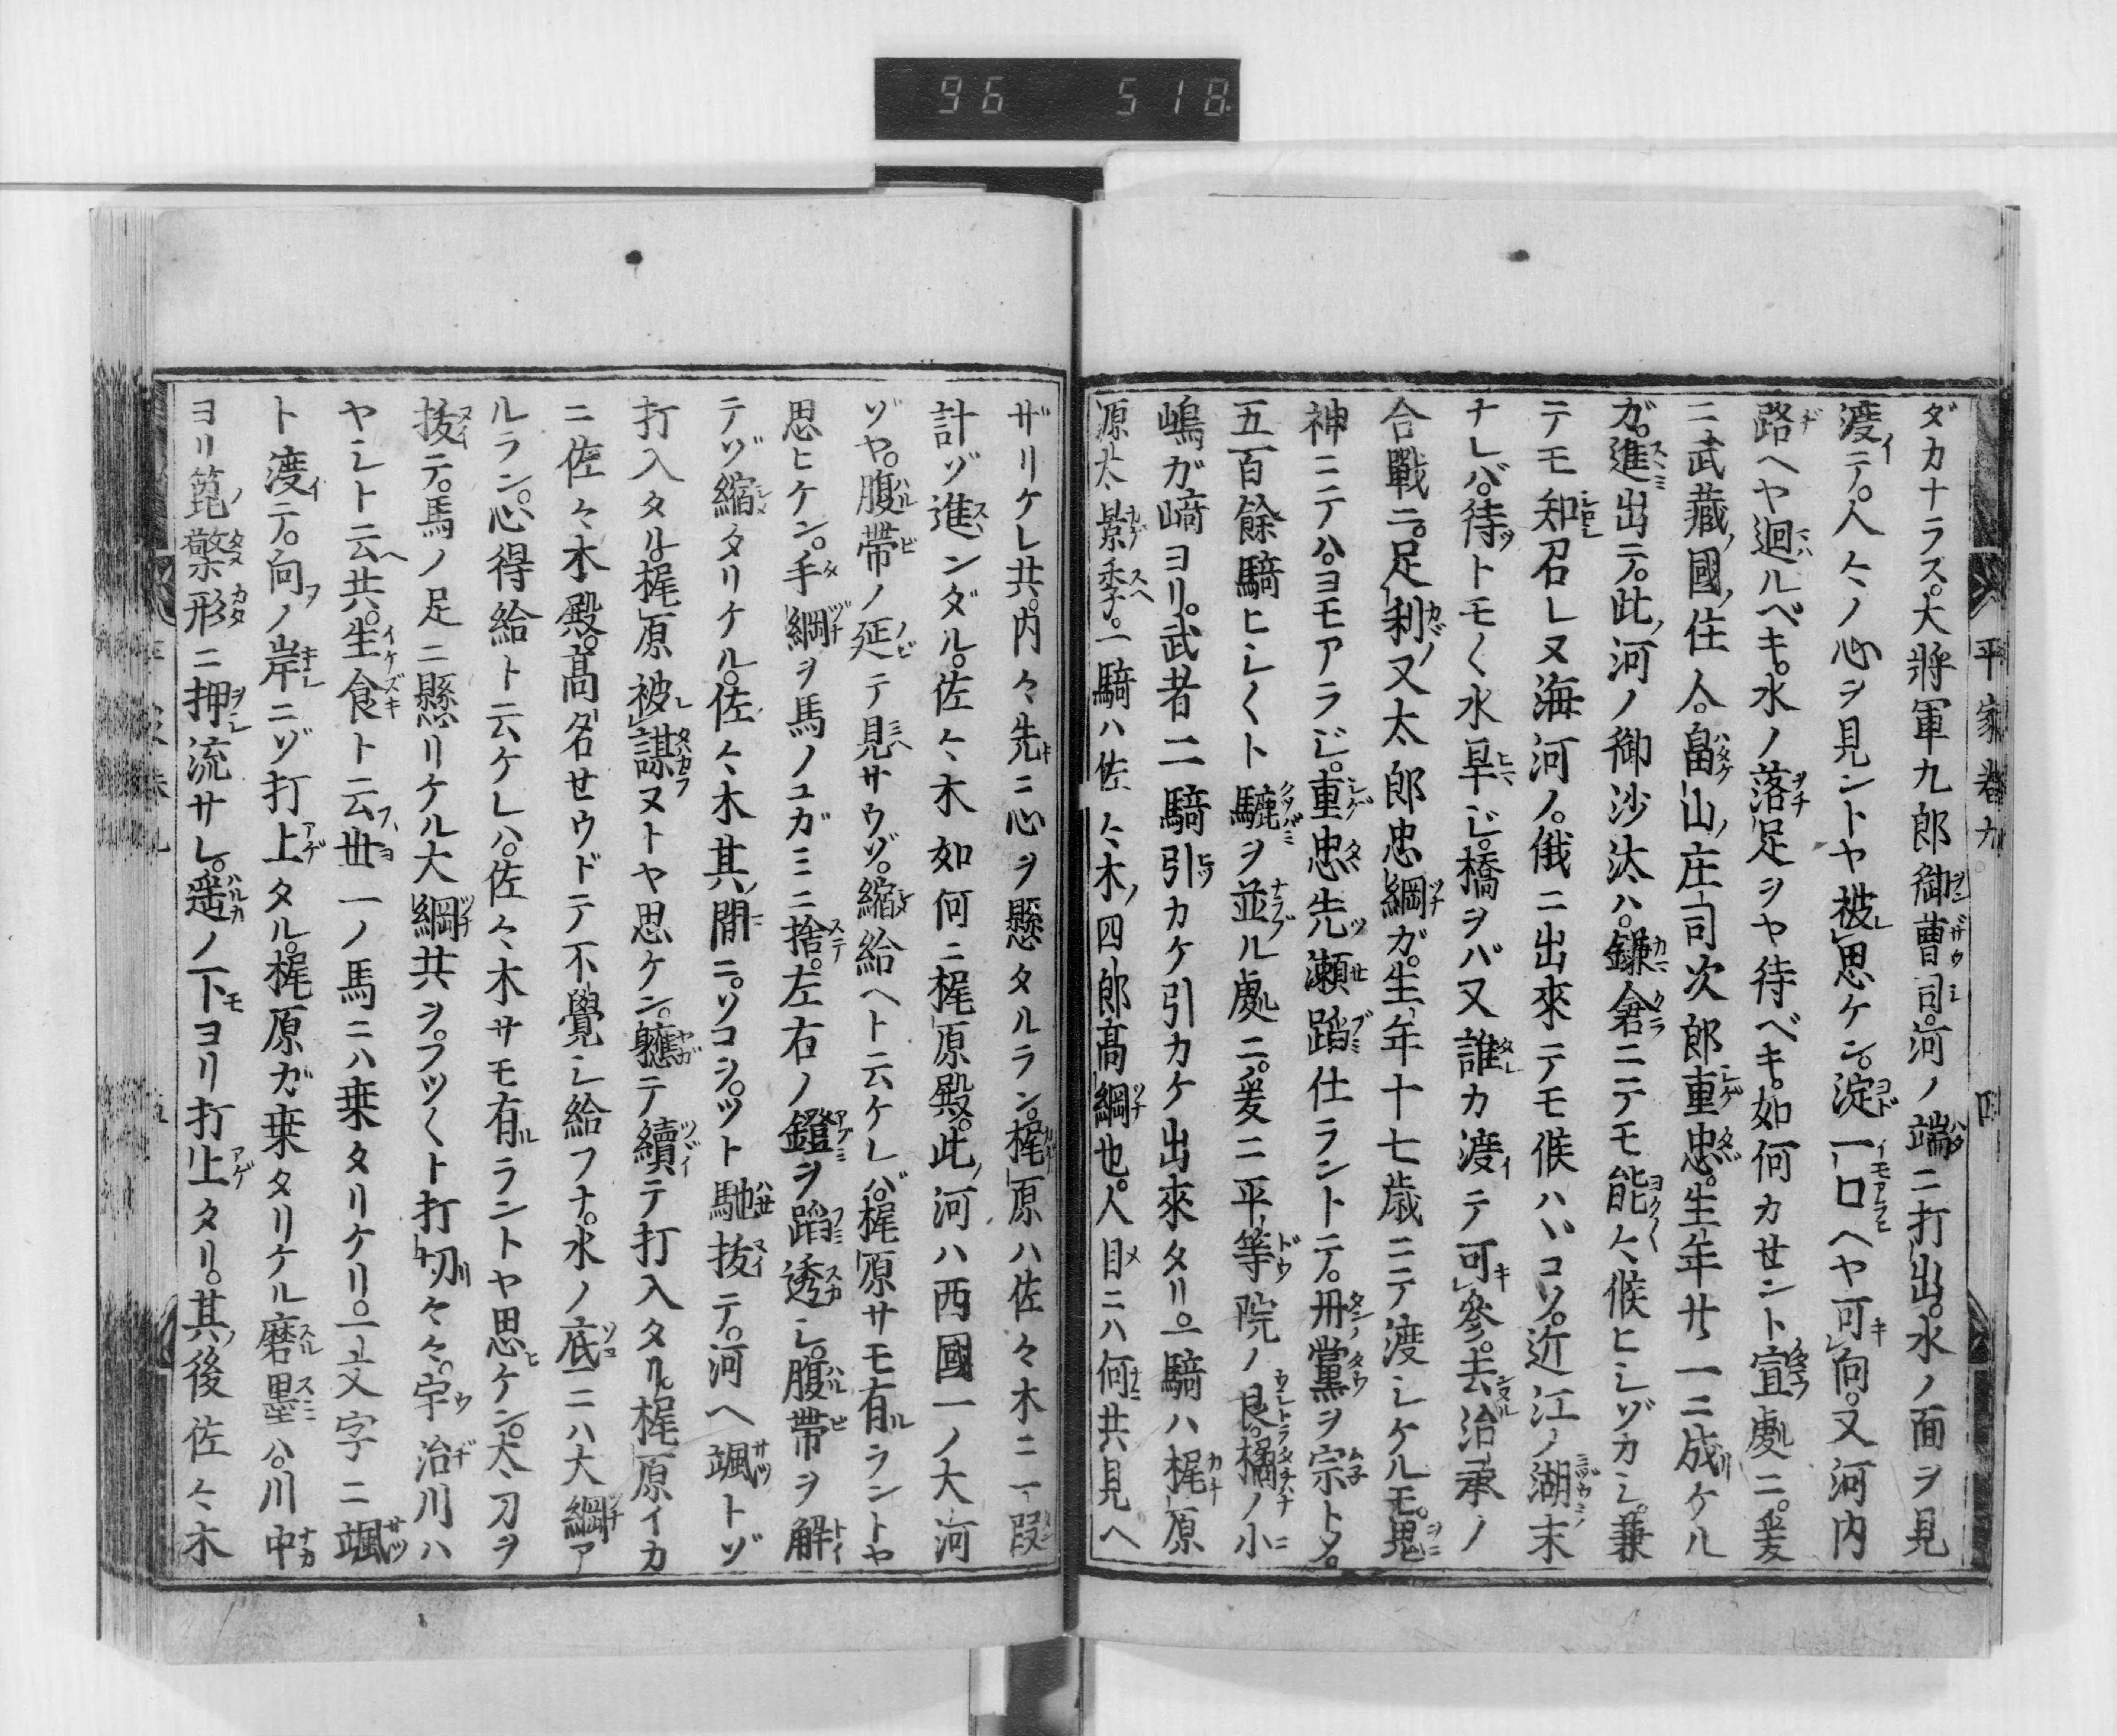 96 518
平家巻九 四
ダカナラス。大將軍九郎御曹司。河ノ端ニ打出。水ノ面ヲ見
渡テ。人々ノ心ヲ見ントヤ被思ケン。淀一口ヘヤ可向。又河内
路ヘヤ廻ルベキ。水ノ落足ヲヤ待ベキ。如何カセント宣處ニ。爰
ニ武藏國ノ住人。畠山ノ庄司次郎重忠。生年廿一ニ成ケル
ガ。進出テ。此河ノ御沙汰ハ。鎌倉ニテモ能々候ヒシゾカシ。兼
テモ知召レヌ海河ノ。俄ニ出來テモ候ハヾコソ。近江ノ湖末
ナレバ。待トモ〱水旱ジ。橋ヲバ又誰カ渡テ可參。去治承ノ
合戰ニ。足利又太郎忠綱ガ。生年十七歳ニテ渡シケルモ。鬼
神ニテハ。ヨモアラジ。重忠先瀬蹈仕ラントテ。丹黨ヲ宗トメ。
五百餘騎ヒシ〱ト轡ヲ並ル處ニ。爰ニ平等院ノ艮。橘ノ小
嶋ガ﨑ヨリ。武者二騎引カケ引カケ出來タリ。一騎ハ梶原
源太景季。一騎ハ佐々木ノ四郎高綱也。人目ニハ何共見ヘ
ザリケレ共。内々先ニ心ヲ懸タルラン。梶原ハ佐々木ニ一段
計ゾ進ンダル。佐々木如何ニ梶原殿。此河ハ西國一ノ大河
ゾヤ。腹帶ノ延テ見サウゾ。縮給ヘト云ケレバ。梶原サモ有ラントヤ
思ヒケン。手綱ヲ馬ノユガミニ捨。左右ノ鐙ヲ蹈透シ。腹帶ヲ解
テゾ縮タリケル。佐々木其ノ間ニ。ソコシ。ツト馳抜テ。河ヘ颯トゾ
打入タル。梶原被謀ヌトヤ思ケン。軈テ續テ打入タル。梶原イカ
ニ佐々木殿。高名セウドテ不覺シ給フナ。水ノ底ニハ大綱ア
ルラン。心得給ト云ケレハ。佐々木サモ有ラントヤ思ケン。太刀ヲ
抜テ。馬ノ足ニ懸リケル大綱共ヲ。フツ〱ト打切々々。宇治川ハ
ヤシト云ヘ共。生食ト云世一ノ馬ニハ乗タリケリ。一文字ニ颯
ト渡テ。向ノ岸ニゾ打上タル。梶原ガ乗タリケル磨墨ハ。川中
ヨリ箆撓形ニ押流サレ。遥ノ下ヨリ打上タリ。其ノ後佐々木